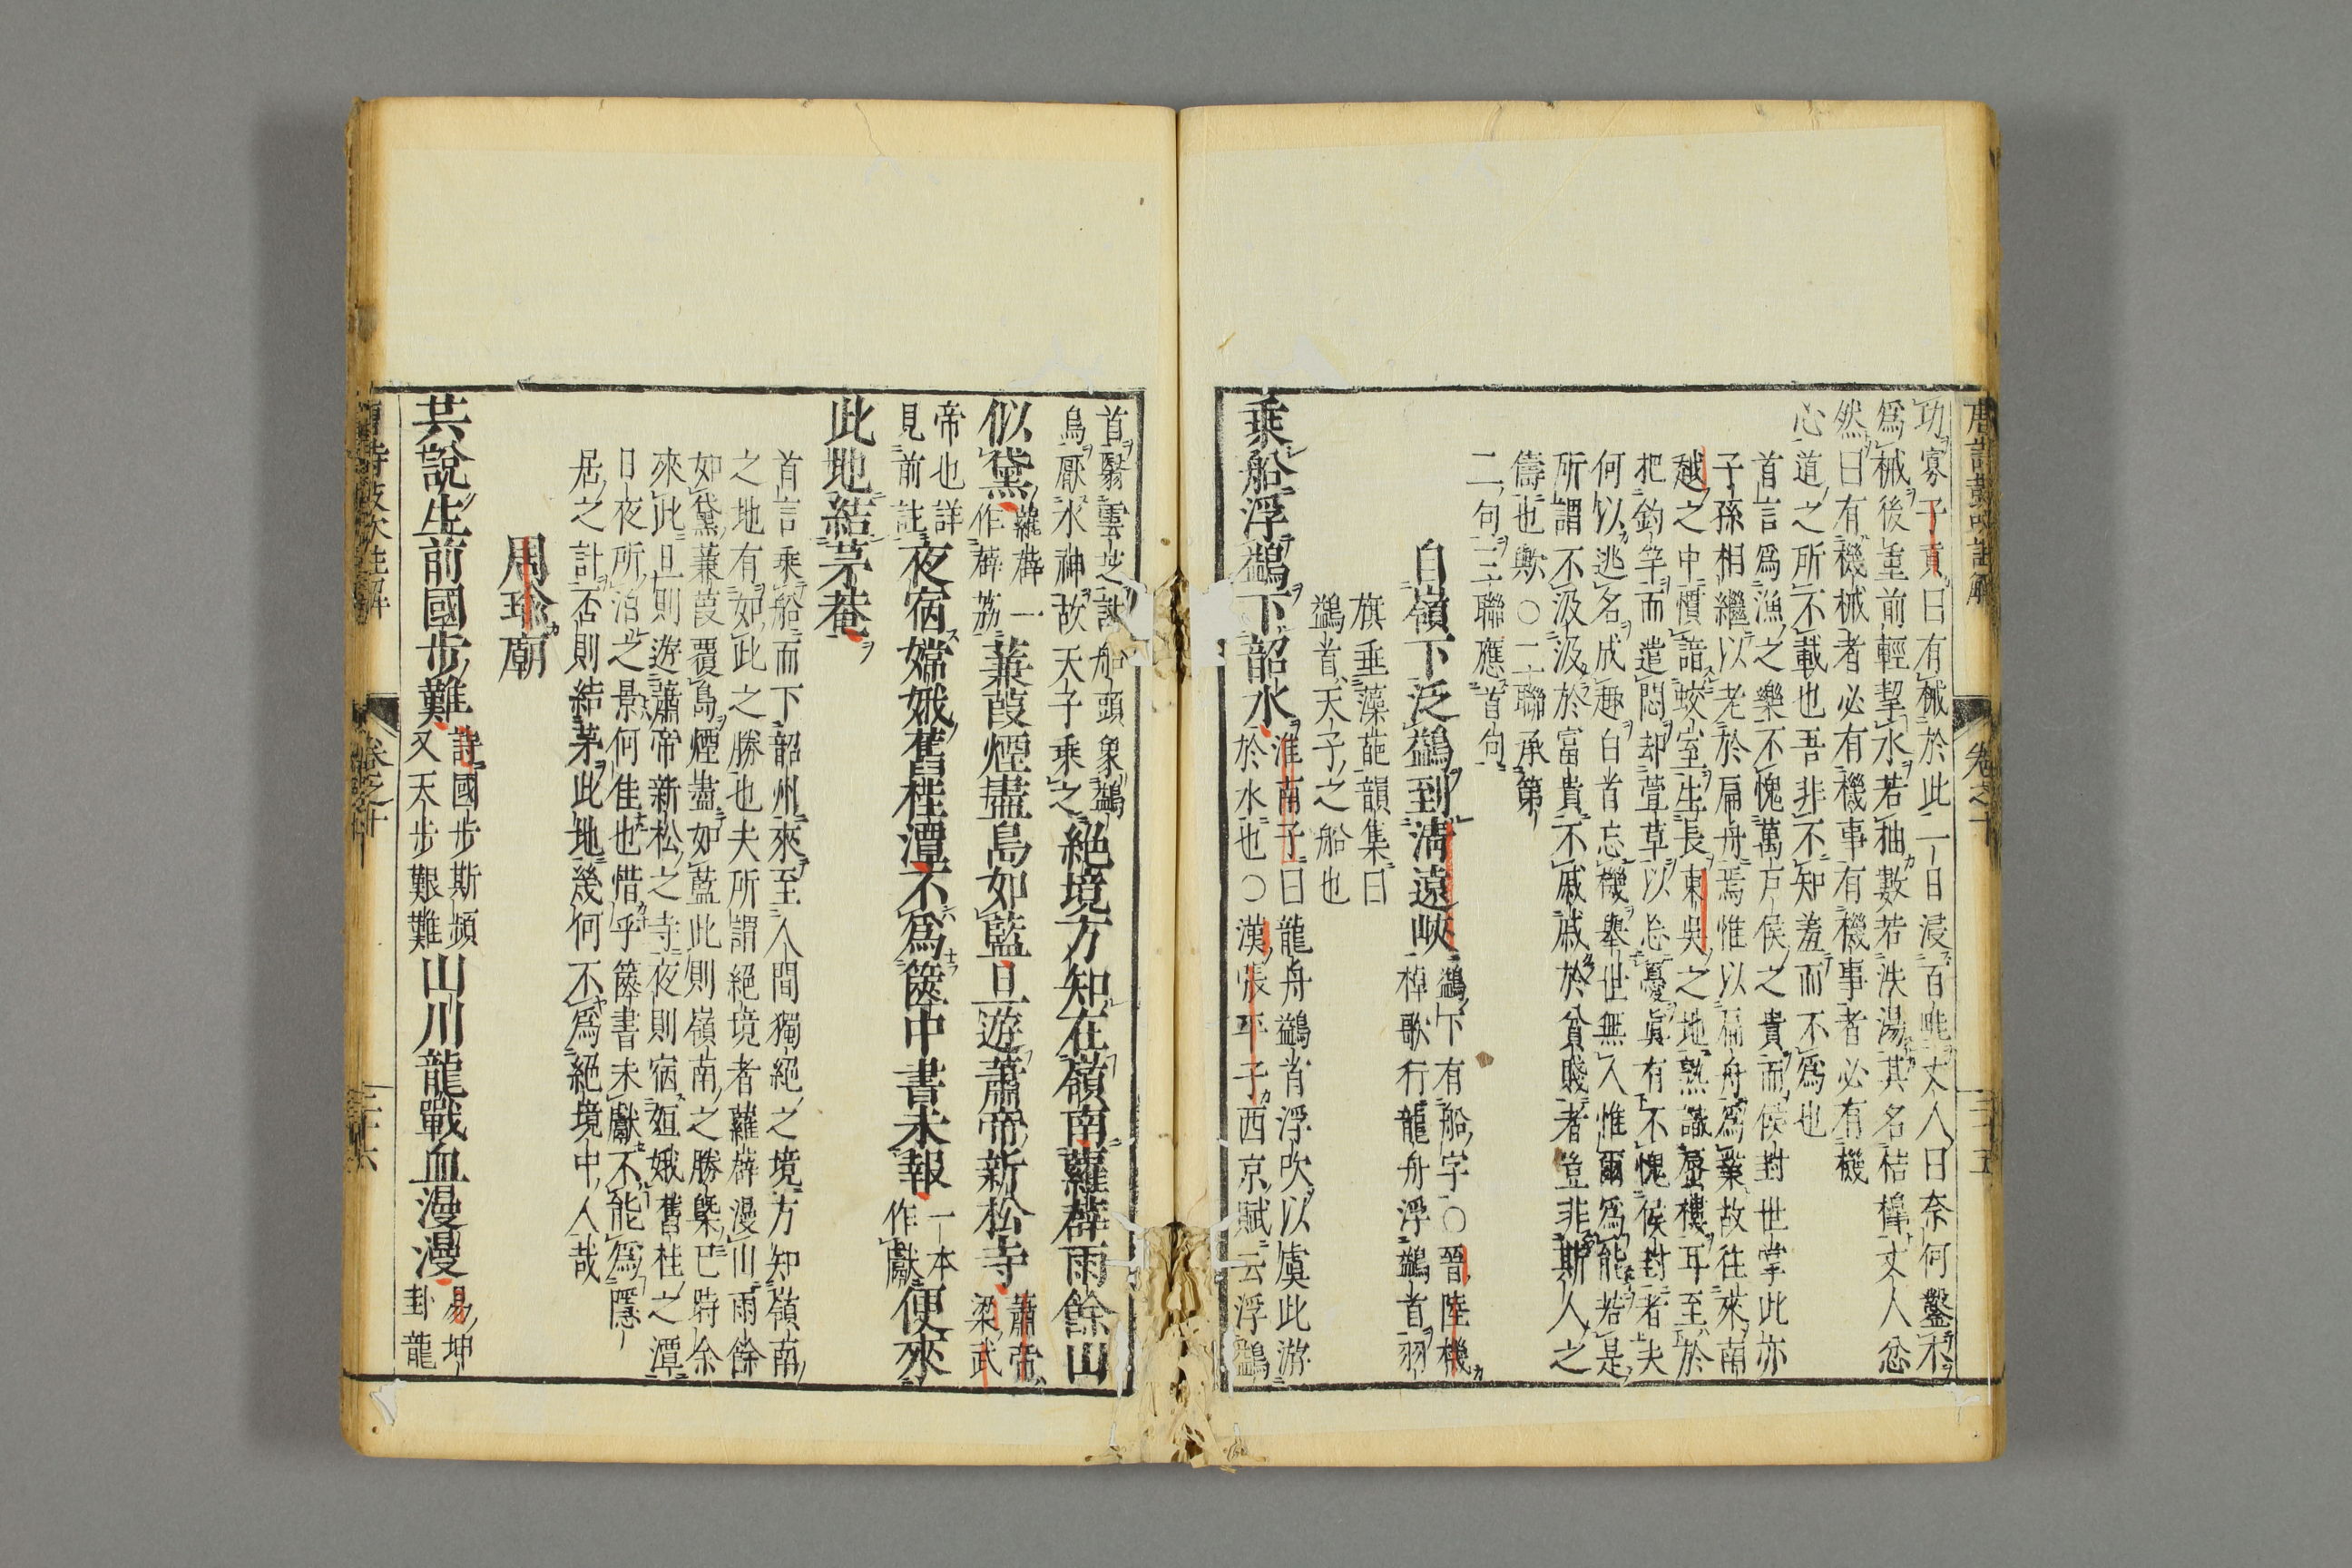 唐詩鼓吹註解 卷之十 三十五
功寡子貢曰有械於此一日浸百畦丈人曰奈何鑿木
爲械後重前輕挈水若抽數若泆湯其名桔槹丈人忿
然曰有機械者必有機事有機事者必有機
心道之所不載也吾非不知羞而不爲也
首言爲漁之樂不愧萬戶侯之貴而侯封世掌此亦
子孫相繼以老於扁舟焉惟以扁舟爲業故往來南
越之中慣諳蛟室生長東吳之地熟識蜃樓耳至於
把釣竿而遣悶却萱草以忘憂眞有不愧侯封者夫
何以逃名成趣白首忘機舉世無人惟爾爲能若是
所謂不汲汲於富貴不戚戚於貧賤者豈非斯人之
儔也歟○二聯承第
二句三聯應首句
自嶺下泛鷁到清遠峽
鷁下有船字○晉陸機
棹歌行龍舟浮鷁首羽
旗垂藻葩韻集曰
鷁首天子之船也
乘船浮鷁下韶水
淮南子曰龍舟鷁首浮吹以虞此游
於水也○漢張平子西京賦云浮鷁
首翳雲芝註船頭象鷁
鳥厭水神故天子乘之
絕境方知在嶺南薜蘿雨餘山
似黛
蘿薜一
作薜荔
蒹葭煙盡島如藍旦遊蕭帝新松寺
蕭帝梁武
帝也詳
見前註
夜宿嫦娥舊桂潭不爲篋中書未報
一本
作獻
便來
此地結茅菴
首言乘船而下韶州來至人間獨絕之境方知嶺南
之地有如此之勝也夫所謂絕境者蘿薜漫山雨餘
如黛蒹葭覆島煙盡如藍此則嶺南之勝槩已時余
來此旦則遊蕭帝新松之寺夜則宿姮娥舊桂之潭
日夜所泊之景何佳也惜乎篋書未獻不能爲隱
居之計否則結茅此地幾何不爲絕境中人哉
周瑜廟
共說生前國步難
詩國步斯頻
又天步艱難
山川龍戰血漫漫
易坤
卦龍
唐詩鼓吹註解 卷之十 三十六